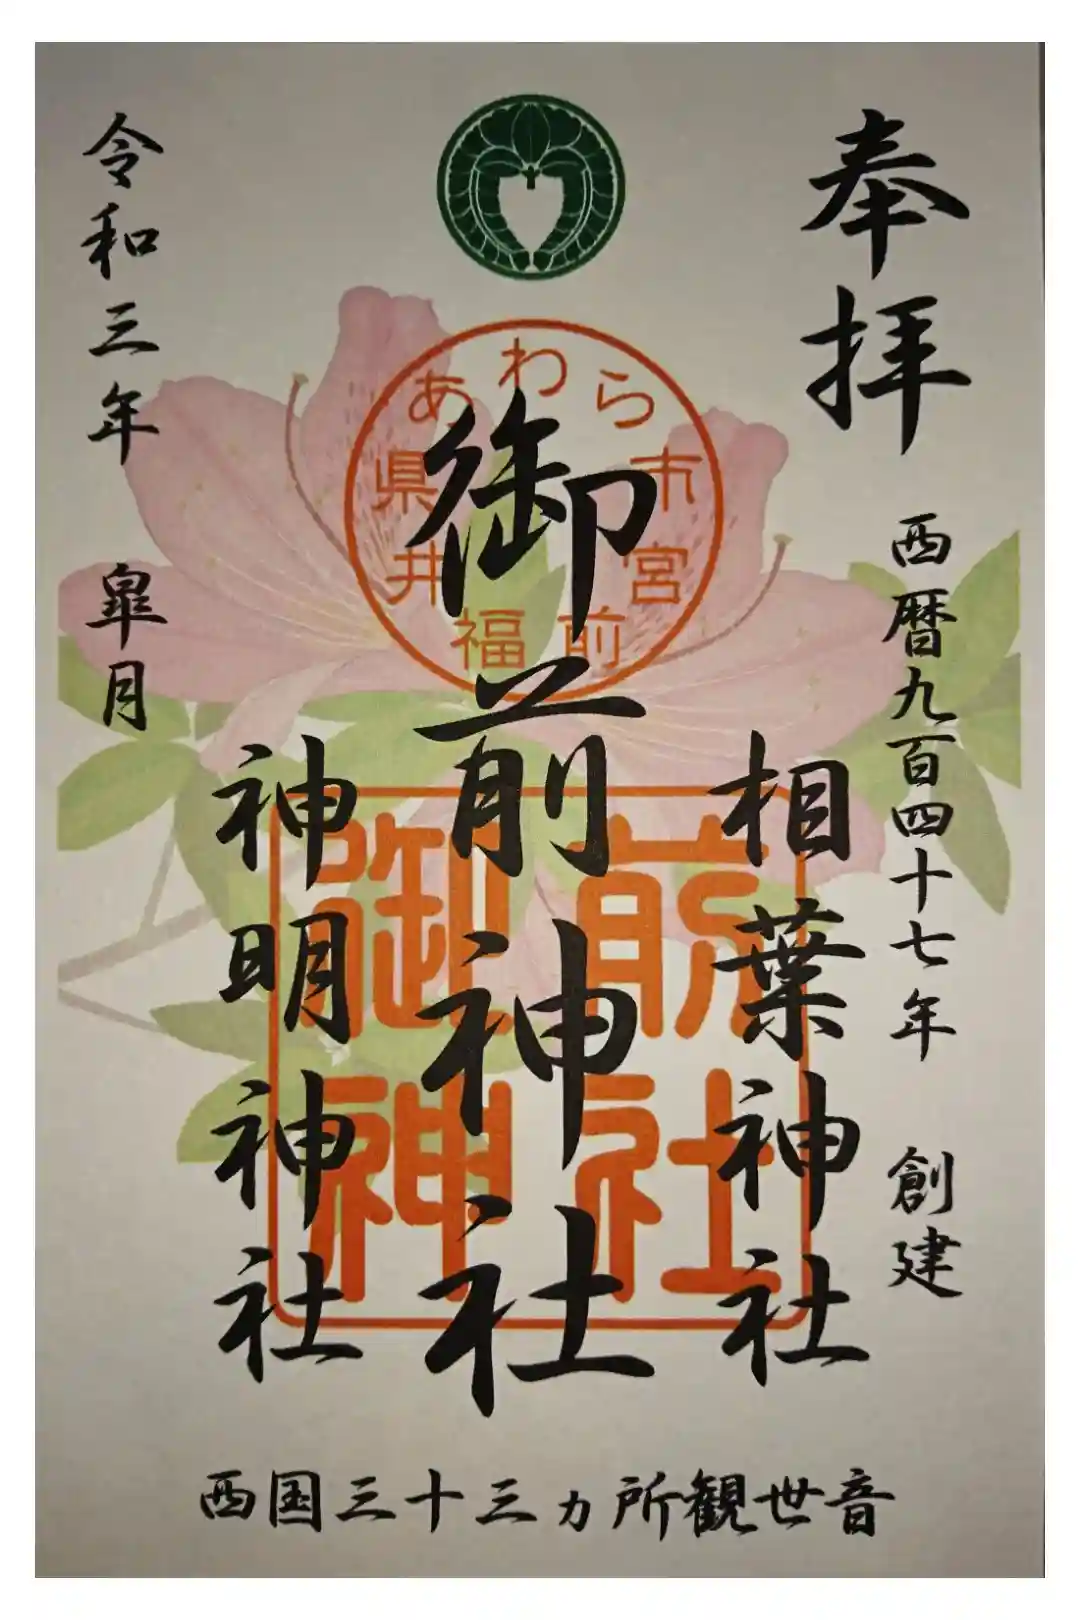 奉拝
西暦九百四十七年 創建
相葉神社
御前神社
神明神社
令和三年 皐月
福井県あわら市宮前
御前
神社
西国三十三ヵ所観世音